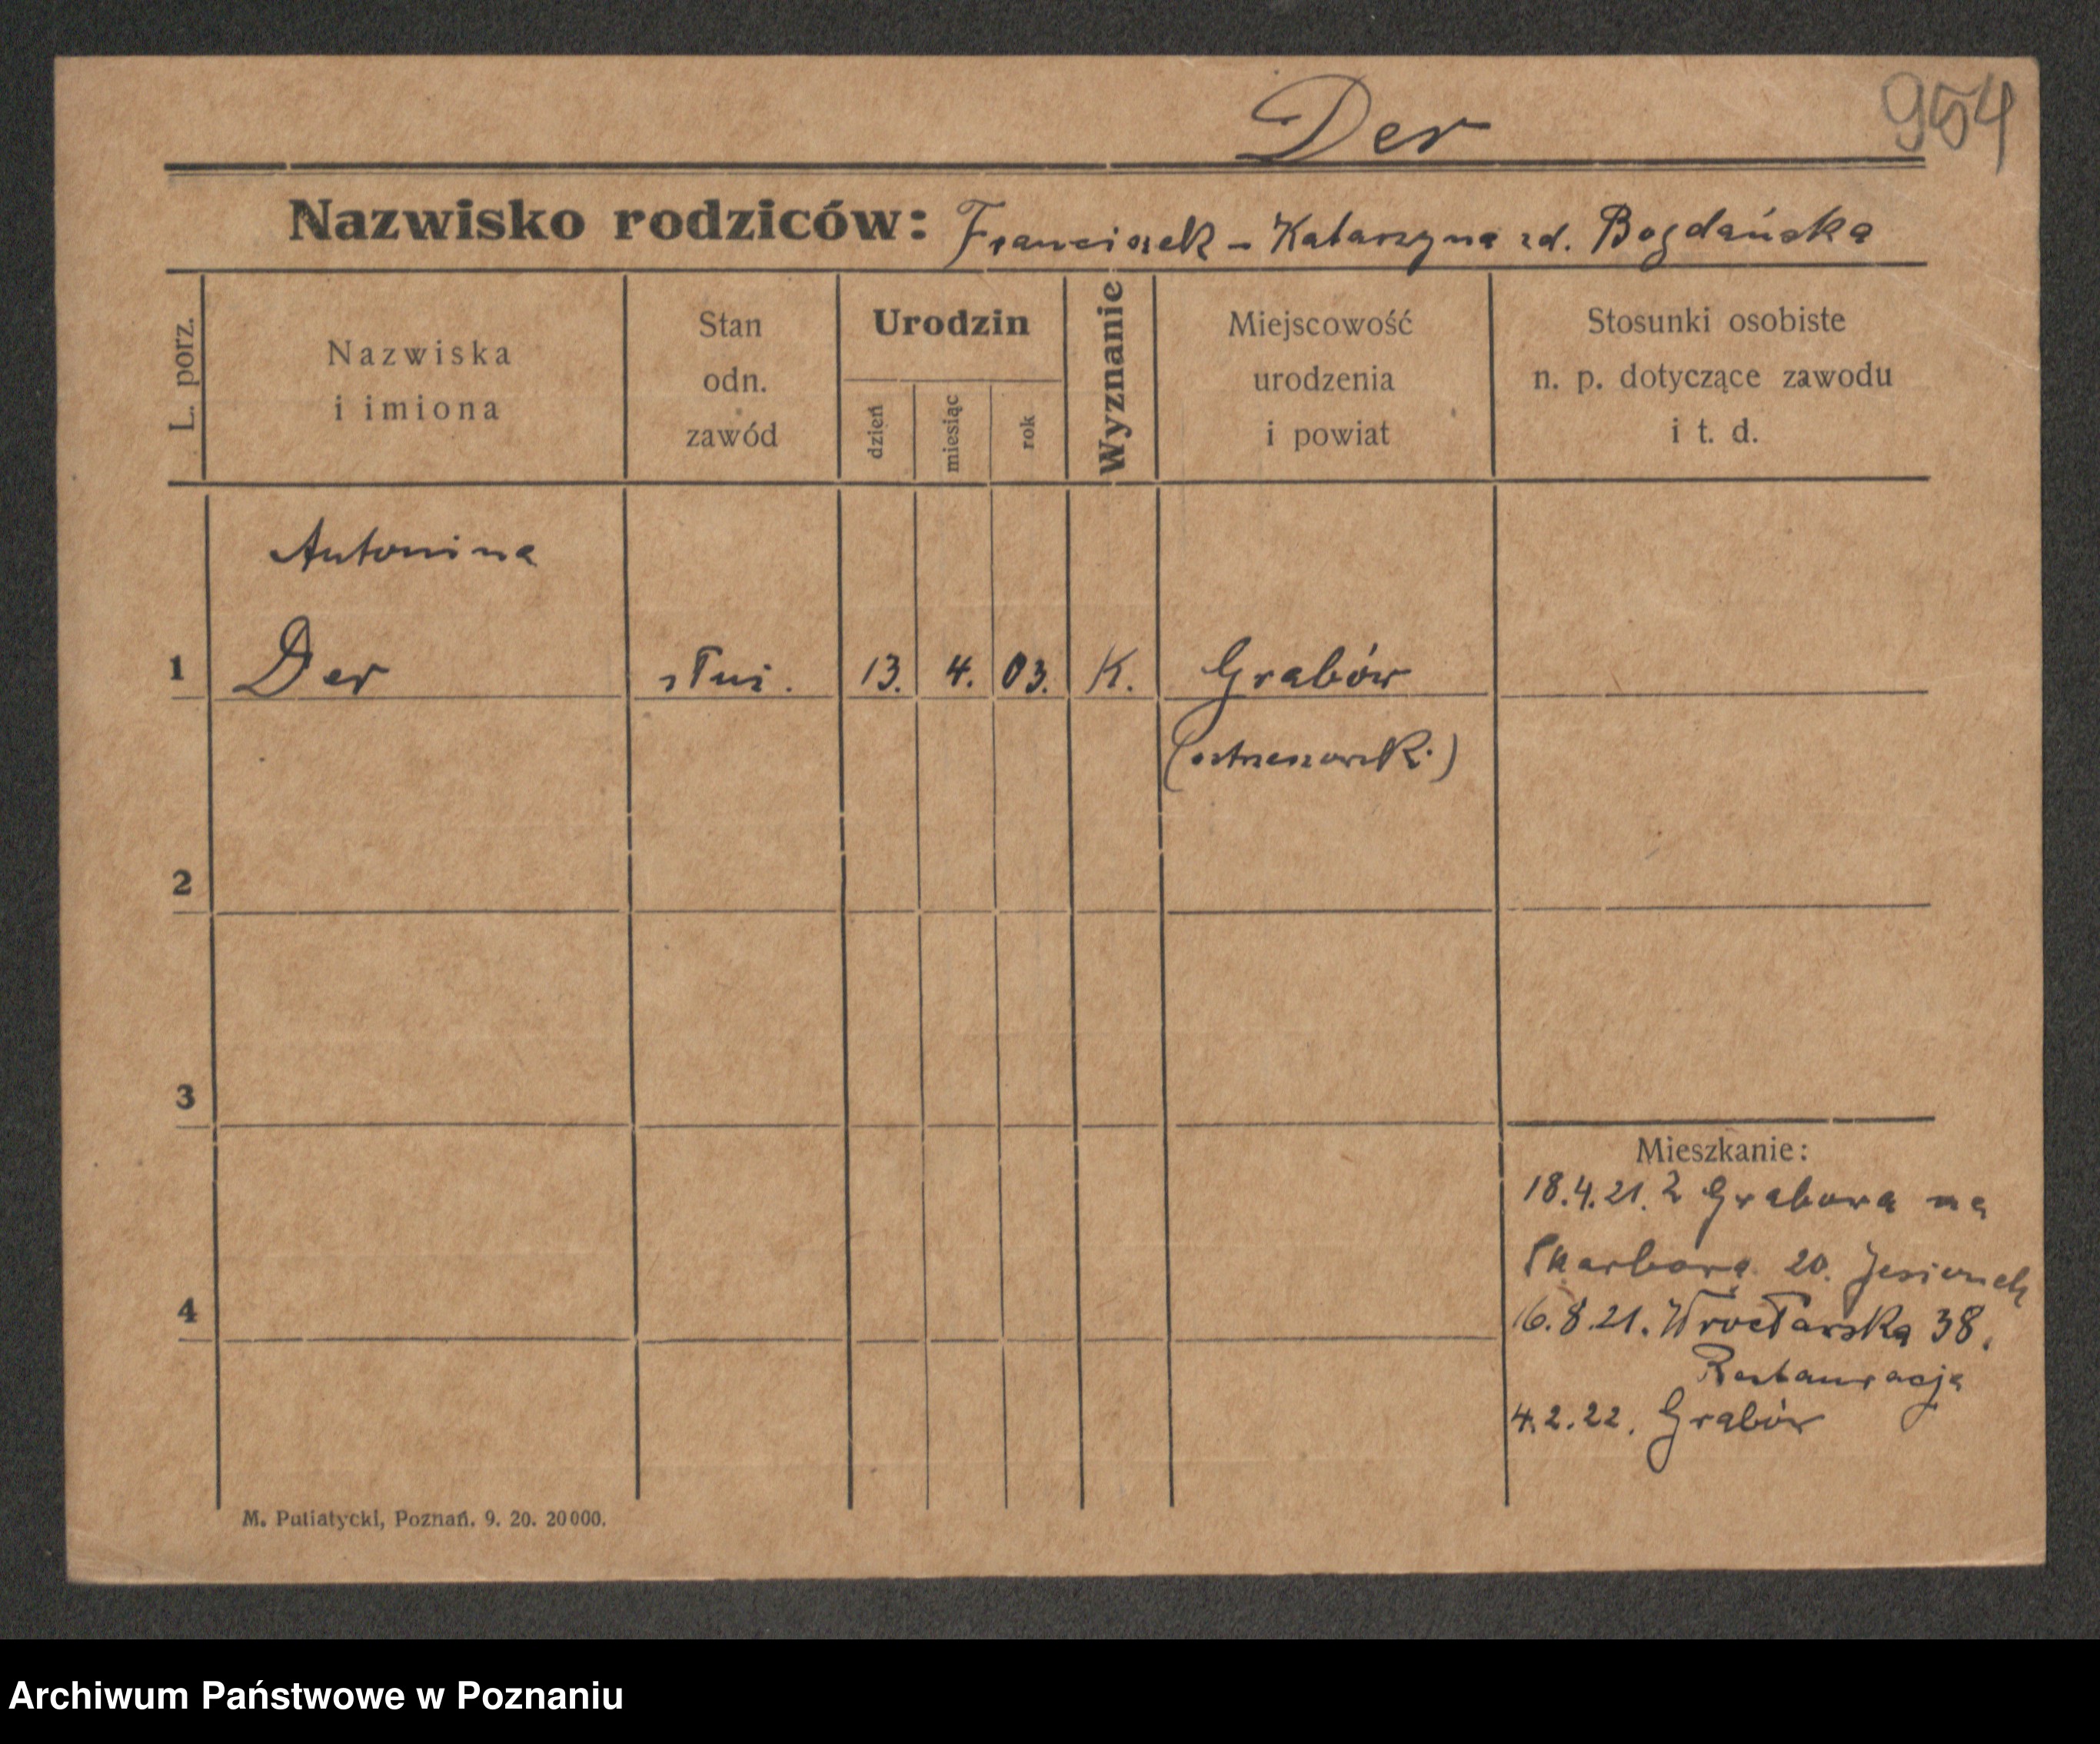 954
Der
Nazwisko rodziców: Franciszek – Katarzyna zd. Bogdańska
L. porz.
Nazwiska
i imiona
Stan
odn.
zawód
Urodzin
dzień
miesiąc
rok
Wyznanie
Miejscowość
urodzenia
i powiat
Stosunki osobiste
n. p. dotyczące zawodu
i t. d.
Antonina
1 Der służ. 13. 4. 03. K. Grabów
(ostrzeszowsk.)
2
3
4
Mieszkanie:
18.4.21. z Grabowa na
Skarbową 20.
16.8.21. Wrocławska 38.
Restauracja
4.2.22. Grabów
M. Putiatycki, Poznań. 9. 20. 20000.
Archiwum Państwowe w Poznaniu